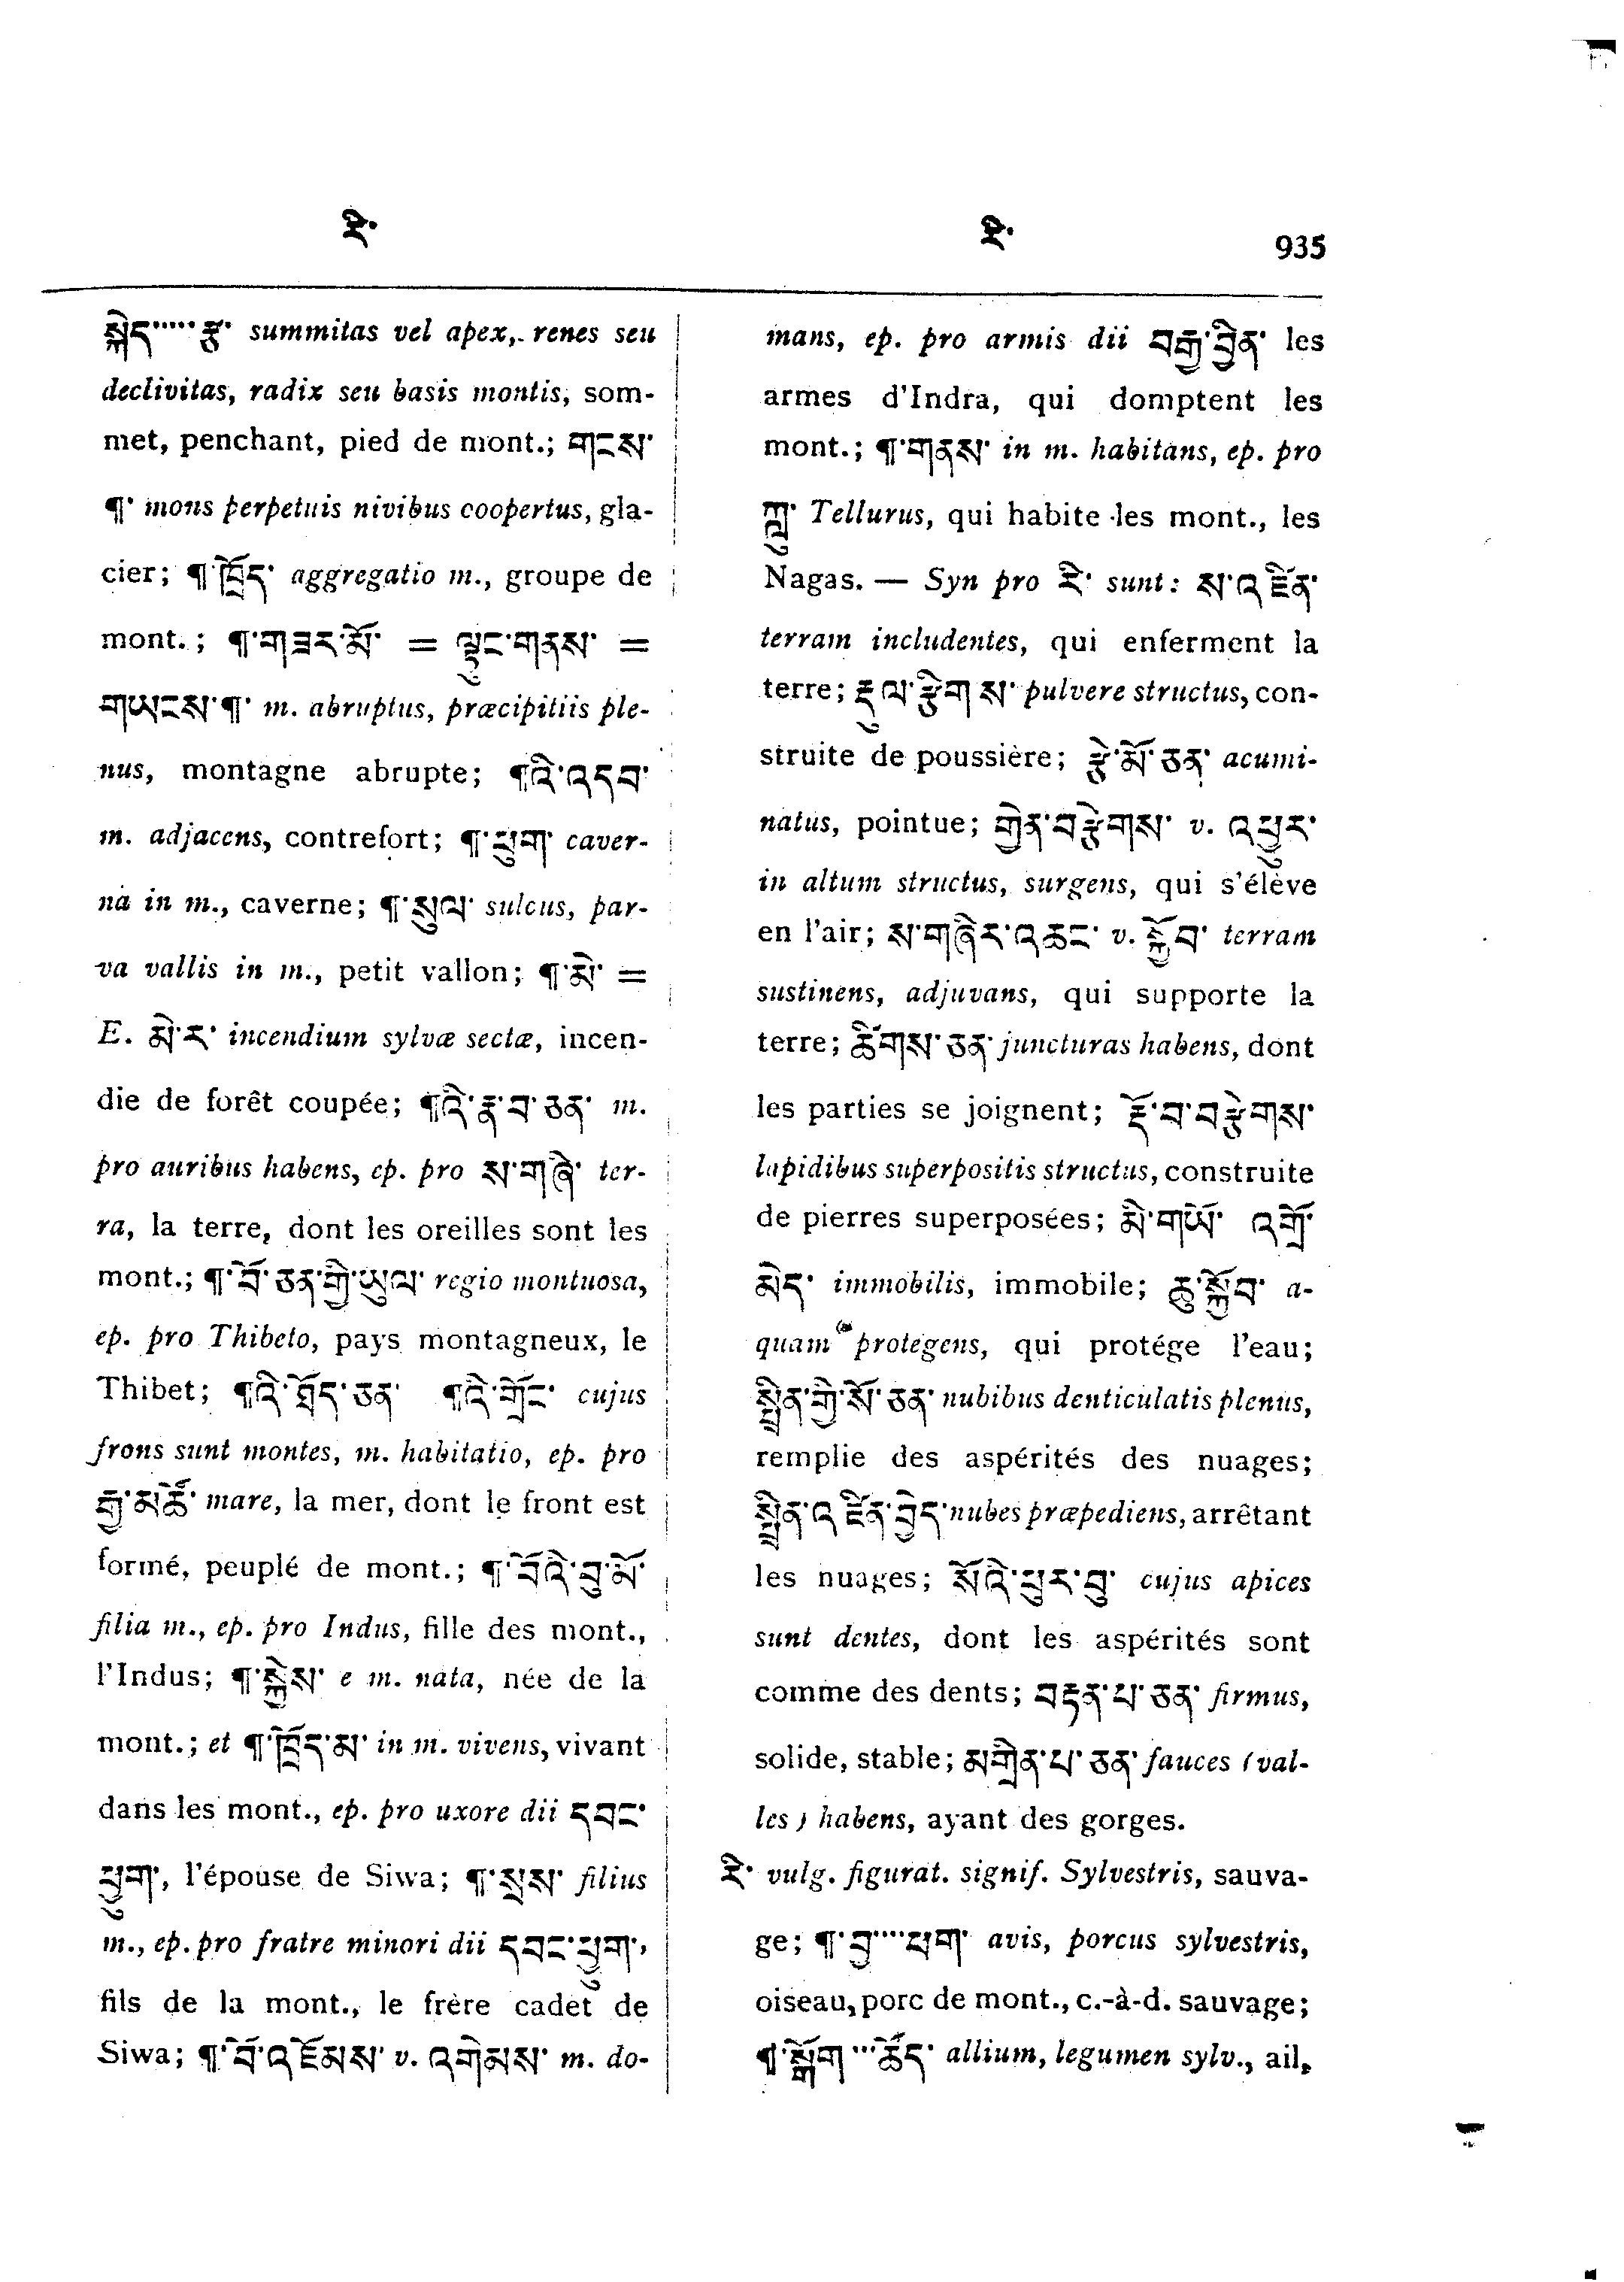 རི་
རི་
935
སྐེད་···· རྩ་ summitas vel apex, renes seu
declivitas, radix seu basis montis, som-
met, penchant, pied de mont.; གངས་
¶་ mons perpetuis nivibus coopertus, gla-
cier; ¶་ཁྲོད་ aggregatio m., groupe de
mont.; ¶་གཟར་མོ་ = ལྷུང་གནས་ =
གཡངས་¶་ m. abruptus, præcipitiis ple-
nus, montagne abrupte; ¶འི་འདབ་
m. adjacens, contrefort; ¶་ཕུག་ caver-
na in m., caverne; ¶་སུལ་ sulcus, par-
va vallis in m., petit vallon; ¶་མེ་ =
E. མེ་ར་ incendium sylvæ sectæ, incen-
die de forêt coupée; ¶འི་རྣ་བ་ཅན་ m.
pro auribus habens, ep. pro ས་གཞི་ ter-
ra, la terre, dont les oreilles sont les
mont.; ¶་བོ་ཅན་གྱི་ཡུལ་ regio montuosa,
ep. pro Thibeto, pays montagneux, le
Thibet; ¶འི་ཐོད་ཅན་ ¶འི་གྲོང་ cujus
frons sunt montes, m. habitatio, ep. pro
རྒྱ་མཚོ་ mare, la mer, dont le front est
formé, peuplé de mont.; ¶་བོའི་བུ་མོ་
filia m., ep. pro Indus, fille des mont.,
l'Indus; ¶་སྐྱེས་ e m. nata, née de la
mont.; et ¶་ཁྲོད་མ་ in m. vivens, vivant
dans les mont., ep. pro uxore dii དབང་
ཕྱུག་, l'épouse de Siwa; ¶་སྲས་ filius
m., ep. pro fratre minori dii དབང་ཕྱུག་,
fils de la mont., le frère cadet de
Siwa; ¶་བོ་འཇོམས་ v. འགེམས་ m. do-
mans, ep. pro armis dii བརྒྱ་བྱིན་ les
armes d'Indra, qui domptent les
mont.; ¶་གནས་ in m. habitans, ep. pro
ཀླུ་ Tellurus, qui habite les mont., les
Nagas. — Syn pro རི་ sunt: ས་འཛིན་
terram includentes, qui enferment la
terre; རྡུལ་རྩིགས་ pulvere structus, con-
struite de poussière; རྩེ་མོ་ཅན་ acumi-
natus, pointue; གྱེན་བརྩེགས་ v. འཕྱུར་
in altum structus, surgens, qui s'élève
en l'air; ས་གཞིར་འཆང་ v. སྐྱོབ་ terram
sustinens, adjuvans, qui supporte la
terre; ཚིགས་ཅན་ juncturas habens, dont
les parties se joignent; རྡོ་བ་བརྩེགས་
lapidibus superpositis structus, construite
de pierres superposées; མི་གཡོ་ འགྲོ་
མེད་ immobilis, immobile; ཆུ་སྐྱོབ་ a-
quam protegens, qui protége l'eau;
སྤྲིན་གྱི་སོ་ཅན་ nubibus denticulatis plenus,
remplie des aspérités des nuages;
སྤྲིན་འཛིན་བྱེད་ nubes præpediens, arrêtant
les nuages; སོའི་ཕུར་བུ་ cujus apices
sunt dentes, dont les aspérités sont
comme des dents; བརྟན་པ་ཅན་ firmus,
solide, stable; མགྲིན་པ་ཅན་ fauces (val-
les) habens, ayant des gorges.
རི་ vulg. figurat. signif. Sylvestris, sauva-
ge; ¶་བྱ་···ཕག་ avis, porcus sylvestris,
oiseau, porc de mont., c.-à-d. sauvage;
¶་སྒོག་···ཚོད་ allium, legumen sylv., ail,